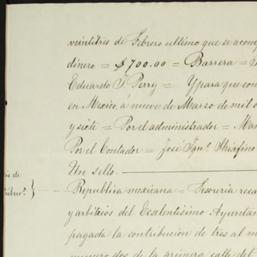 veintitres de Febrero ultimo que se acom
dinero = $700.00 = Barrera =
Eduardo J. Perry = Ypara que con
en Mexico, á nueve de Marzo de mil o
y siete = Por el administrador = Ma
Por el Contador = José Ign.º
Un sello.
Republica mexicana = Tesoreria reca
y arbitrios del Excelentisimo Ayuntam
pagada la contribucion de tres al m
numero dos de la primera calle del